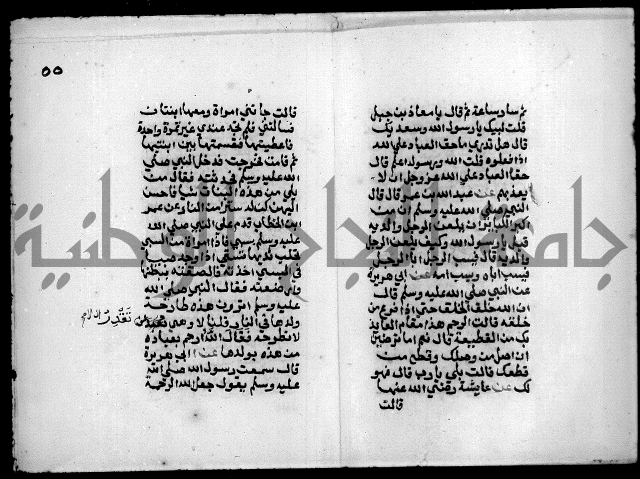 ثم سار ساعة ثم قال يا معاذ بن جبل
قلت لبيك يا رسول الله وسعديك
قال هل تدري ما حق العباد علي الله
اذا فعلوه قلت الله ورسوله اعلم قال
حق العباد علي الله عز وجل ان لا
يعذبهم عن عبد الله بن عمر قال قال
النبي صلي الله عليه وسلم ان من
اكبر الكبائر ان يلعن الرجل والديه
قيل يا رسول الله وكيف يلعن الرجل
والديه قال فيسب الرجل ابا الرجل
فيسب اباه ويسب امه عن ابي هريرة
عن النبي صلي الله عليه وسلم قال
ان الله خلق الخلق حتي اذا فرغ من
خلقه قالت الرحم هذا مقام العايذ
بك من القطيعة قال نعم اما ترضين
ان اصل من وصلك واقطع من
قطعك قالت بلي يا رب قال فهو
لك عن عايشة رضي الله عنها
قالت
٥٥
قالت جاتني امراة ومعها ابنتان
فسالتني فلم تجد عندي غير تمرة واحدة
فاعطيتها فقسمتها بين ابنتيها
ثم قامت فخرجت فدخل النبي صلي
الله عليه وسلم فحدثته فقال من
بلي من هذه البنات شيا فاحسن
اليهن كن له سترا من النار عن عمر
ابن الخطاب قدم علي النبي صلي الله
عليه وسلم سبي فاذا امراة من السبي
قد تحلب ثديها تسقي اذا وجد صبيا
في السبي اخذته فالصقته ببطنها
وارضعته فقال النبي صلي الله
عليه وسلم اترون هذه طارحة
ولدها في النار قلنا لا وهي تقدر
ان لا تطرحه فقال الله ارحم بعباده
من هذه بولدها عن ابي هريرة
قال سمعت رسول الله صلي الله
عليه وسلم يقول جعل الله الرحمة
تقدر
جامعة النجاح الوطنية